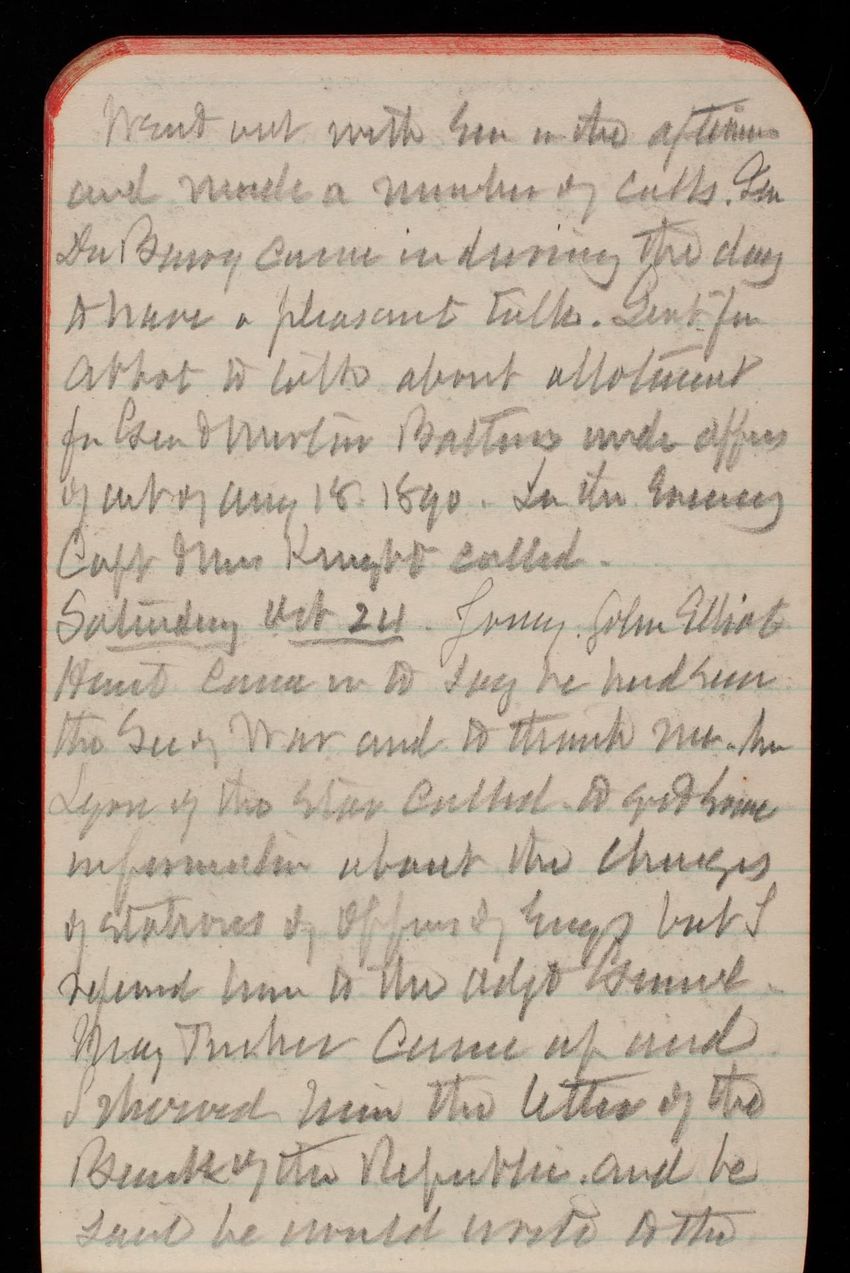 Went out with Gen in the afternoon
and made a number of calls. Gen
Du Barry came in during the day
to have a pleasant talk. Sent for
Abbot to talk about allotment
for Gun & Mortar Batteries under appn
of act of Aug 18. 1890. In the Evening
Capt & Mrs Knight called.
Saturday Oct 24. John Elliot
came in to say he had seen
the Sec of War and to thank me. Mr
Lyon of the Star called to get some
information about the changes
of stations of Officers of Engrs but I
referred him to the Adjt General.
May Tucker came up and
I showed him the letter of the
Bank of the Republic. and he
said he would write to the